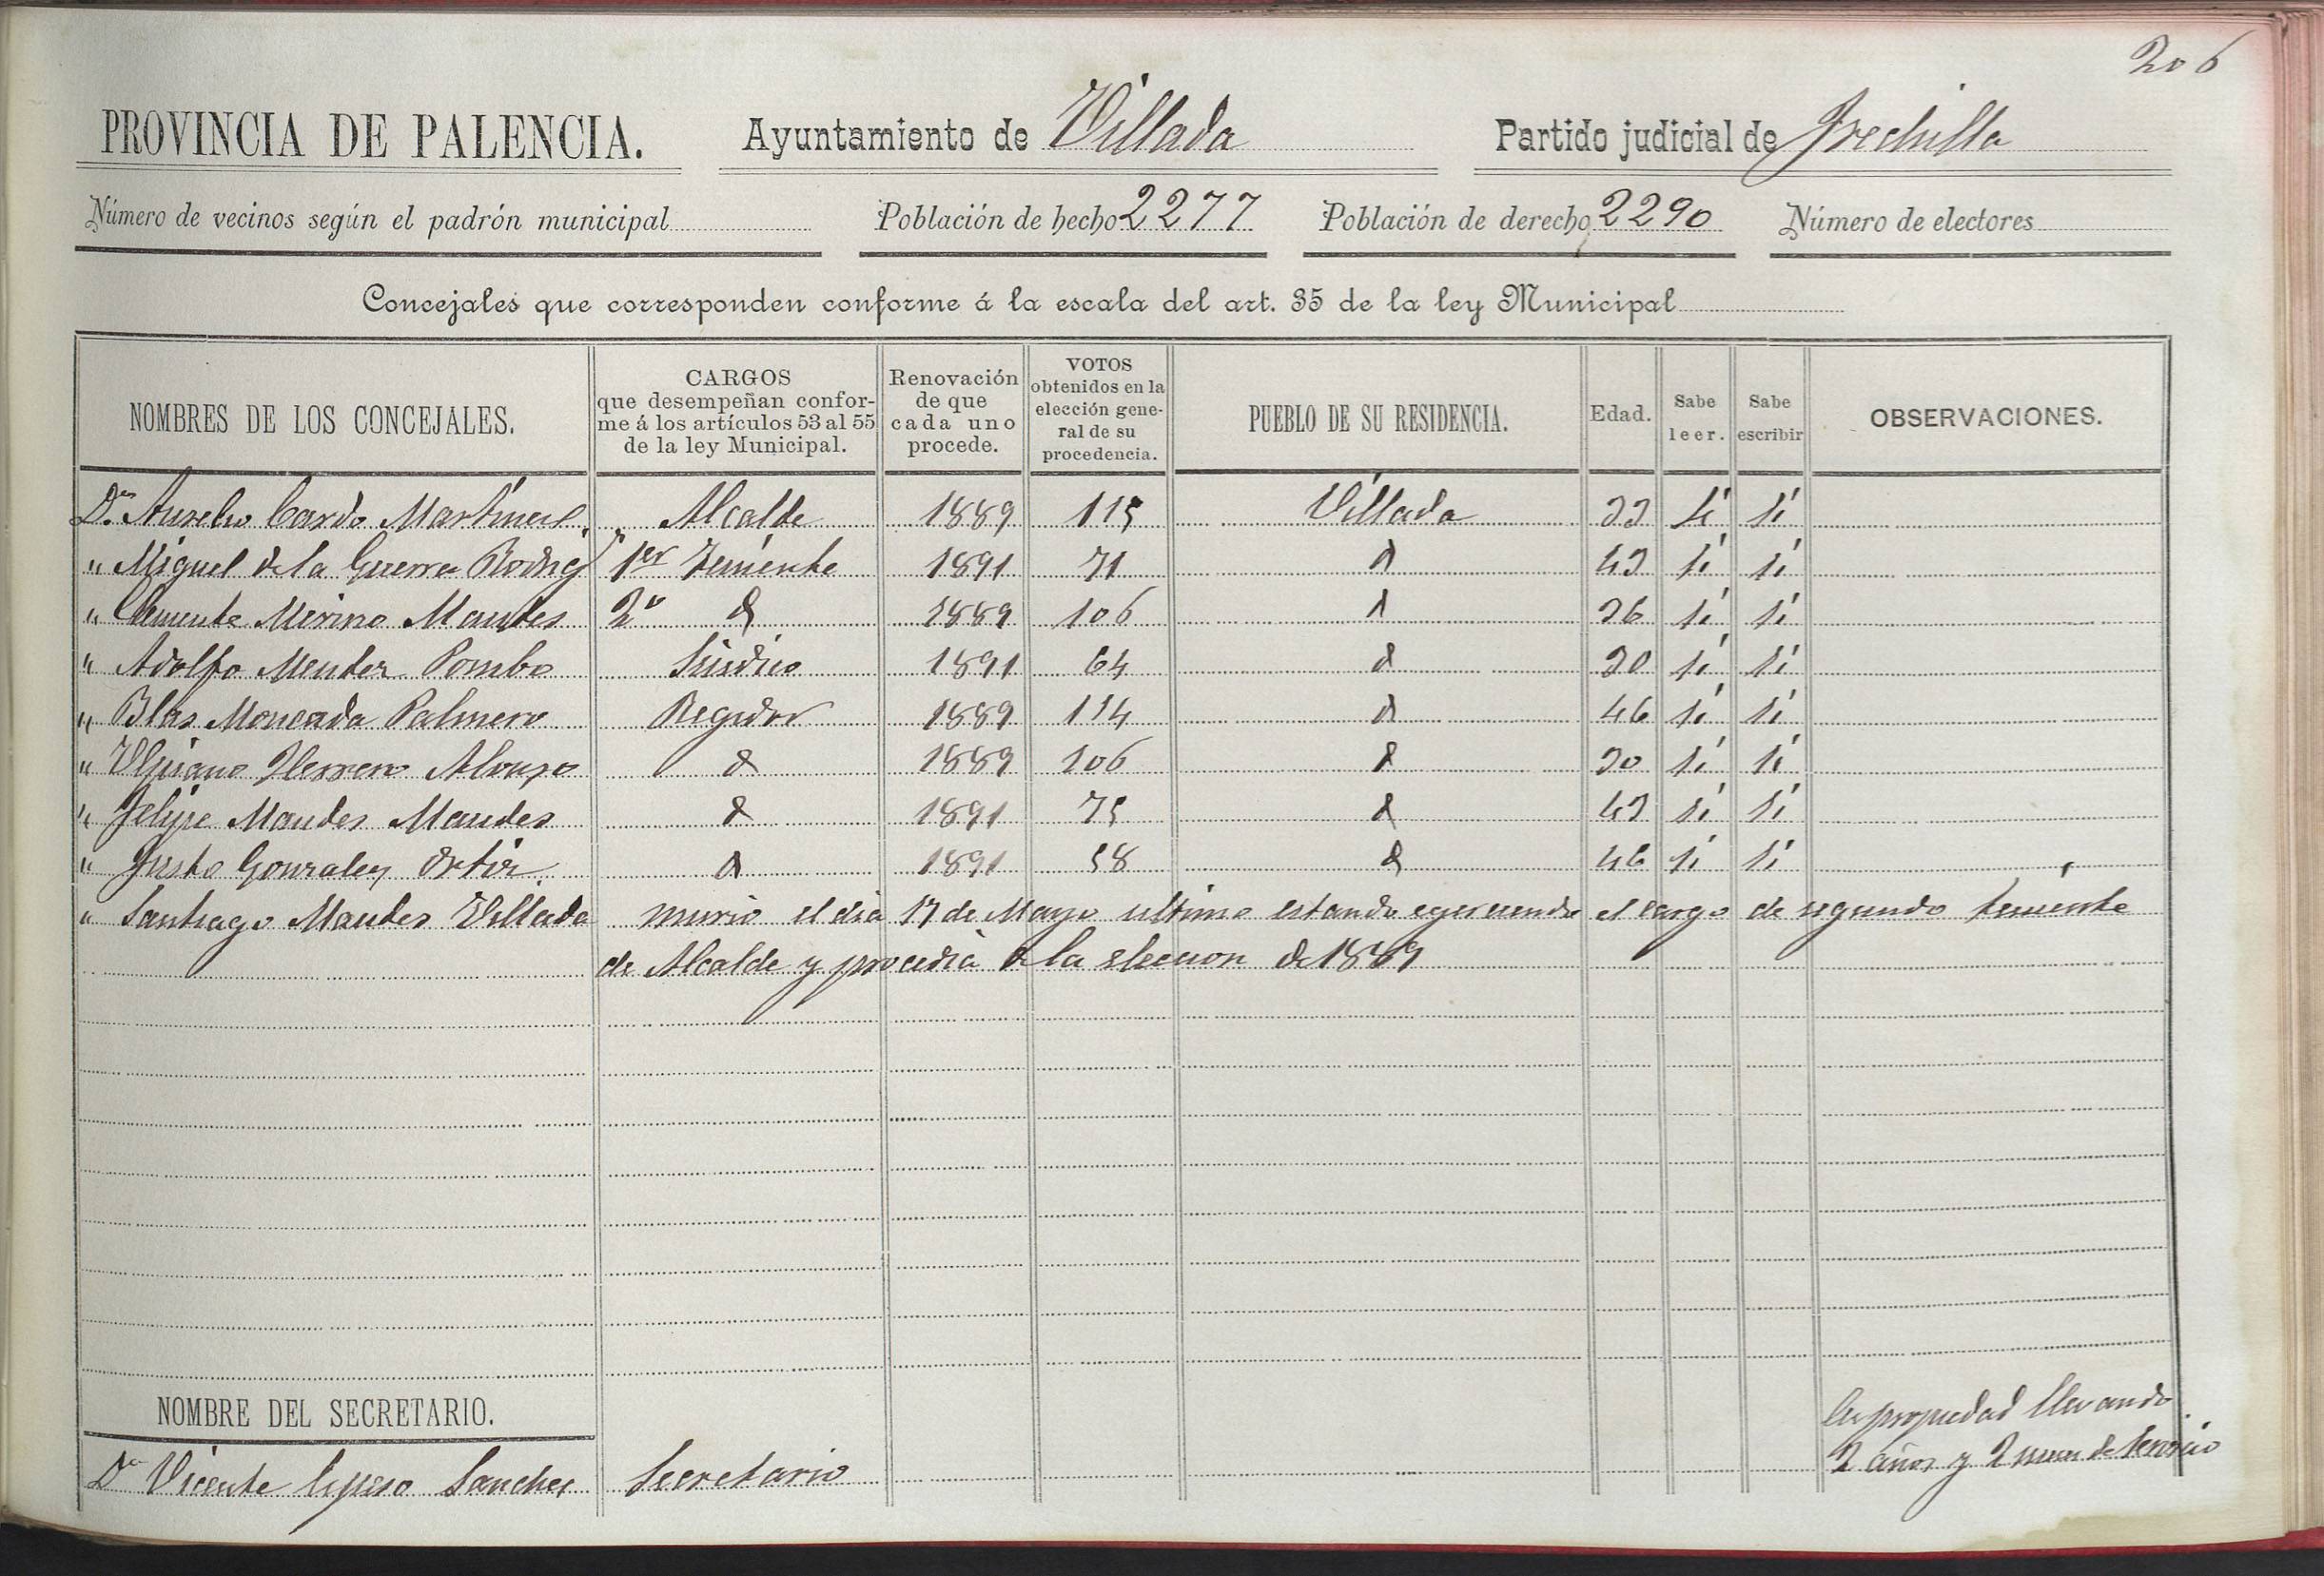 206
PROVINCIA DE PALENCIA. Ayuntamiento de Villada Partido judicial de Frechilla
Número de vecinos según el padrón municipal Población de hecho 2277 Población de derecho 2290 Número de electores
Concejales que corresponden conforme á la escala del art. 35 de la ley Municipal
NOMBRES DE LOS CONCEJALES. CARGOS que desempeñan conforme á los artículos 53 al 55 de la ley Municipal. Renovación de que cada uno procede. VOTOS obtenidos en la elección general de su procedencia. PUEBLO DE SU RESIDENCIA. Edad. Sabe leer. Sabe escribir OBSERVACIONES.
Dn Aurelio Cardo Martinez Alcalde 1889 115 Villada 33 si si
" Miguel de la Guerra Rodrig 1er Teniente 1891 71 d 43 si si
" Clemente Merino Mantes 2º d 1889 106 d 36 si si
" Adolfo Mentes Pombo Sindico 1891 64 d 30 si si
" Blas Moncada Palmero Regidor 1889 114 d 46 si si
" Ulpiano Herrero Alonso d 1889 106 d 30 si si
" Felipe Maudes Maudes d 1891 75 d 43 si si
" Justo Gonzalez Ortiz d 1891 58 d 46 si si
" Santiago Villada murio el dia 17 de Mayo ultimo estando egerciendo el cargo de segundo teniente
de Alcalde y procedia de la eleccion de 1889
NOMBRE DEL SECRETARIO.
Dn Vicente Sanchez Secretario En propiedad llevando
2 años y 2 meses de servicio